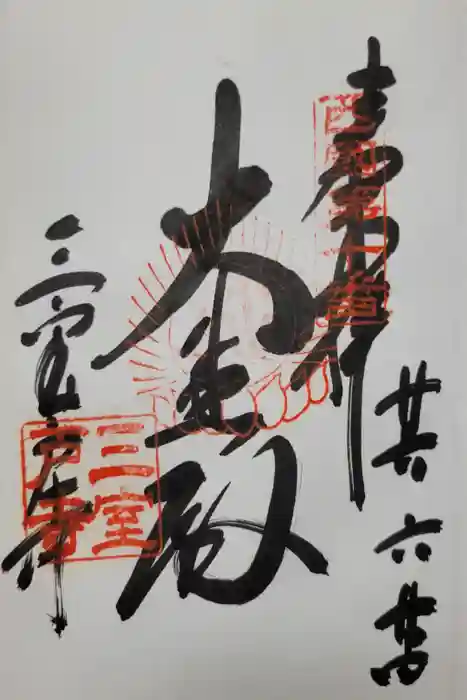 奉拝
西國第十番
六
大悲殿
三室戸寺
三室戸寺